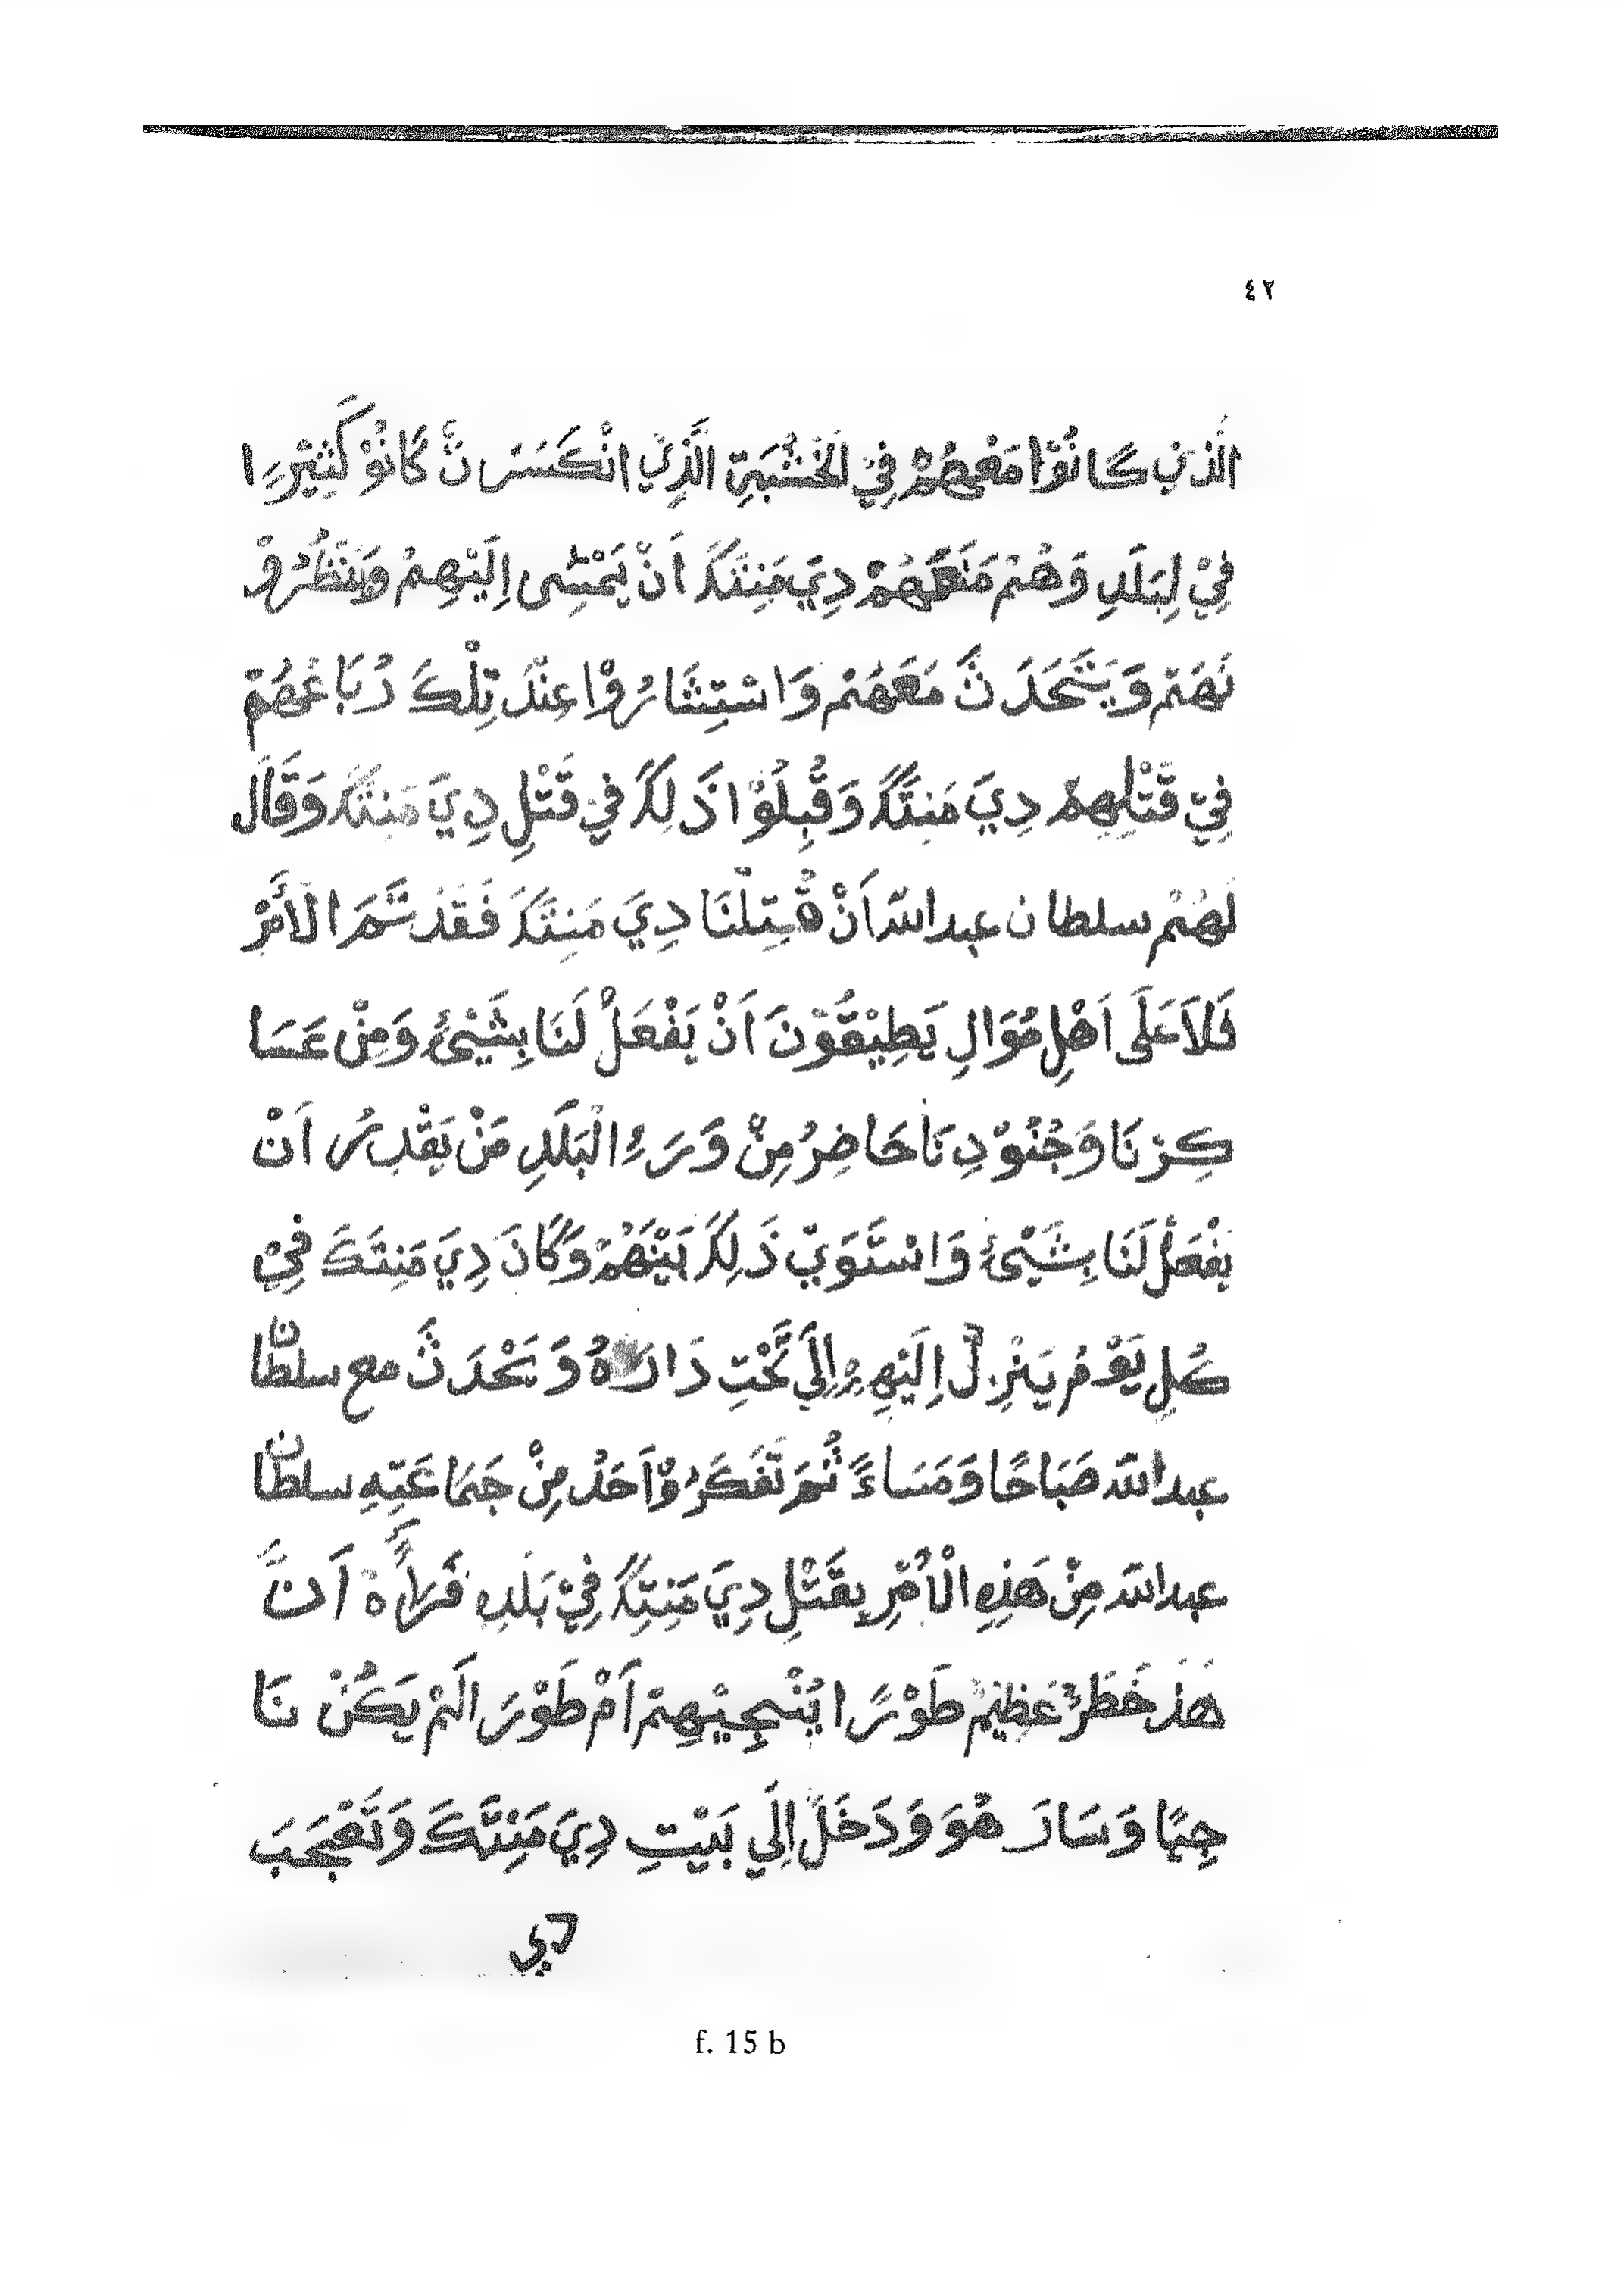 ٤٢
الَّذِينَ كَانُوْا مَعَهُمْ فِيْ الْخَشَبَةِ الَّذِيْ انْكَسَرَتْ كَانُوْ كَثِيْرًا
فِيْ لِبَلَدِ وَهُمْ مَنَعَهُمْ دِيَ مَنِتَكَ اَنْ يَمْشِى اِلَيْهِمْ وَيَنْظُرُوْ
نَهُمْ وَيَتَّحَدَثَ مَعَهُمْ وَاسْتِشَارُوْا عِنْدَ تِلْكَ رُبَاعَهُمْ
فِيْ قَتْلِهِمْ دِيَ مَنِتَكَ وَقُبِلُوْا ذَلِكَ فِيْ قَتْلِ دِيَ مَنِتَكَ وَقَالَ
لَهُمْ سلطان عبدالله اَنْ قُتِلْنَا دِيَ مَنِتَكَ فَقَدْ تَّمَ الْأَمْرُ
فَلَا عَلَى اَهْلِ مُوَالِ يَطِيْقُوْنَ اَنْ يَفْعَلْ لَنَا بِشَيْئُ وَمِنْ عَسَا
كِرْنَا وَجُنُوْدِنَا حَاضِرُ مِنْ وَرَءِ الْبَلَدِ مَنْ يَقْدِرُ اَنْ
يَفْعَلْ لَنَا بِشَيْئُ وَاسْتَوَيْ ذَلِكَ بَيْنَهُمْ وَكَانَ دِيَ مَنِتَكَ فِيْ
كُلِ يَوْمُ يَنْزِلْ اِلَيْهِمْ اِلَي تَحْتِ دَارَهُ وَيَحْدَثَ مع سلطان
عبدالله صَبَاحًا وَمَسَاءً ثُمَ تَفَكَرُ وْاَحَدُ مِنْ جَمَاعَتِهِ سلطان
عبدالله مِنْ هَذِهِ الْأَمْرِ بِقَتْلِ دِيَ مَنِتِكَ فِيْ بَلَدِ فَرَأَهْ اَنَّ
هَذَ خَطَرُ عَظِيمْ طَوْرًا يُنْجِيْهِمْ اَمْ طَوْرَ الَمْ يَكُنْ نَا
جِيًا وَسَارَ هُوَ وَدَخَلَ اِلَي بَيْتِ دِيَ مَنِتَكَ وَتَعْجَبَ
دي
f. 15 b